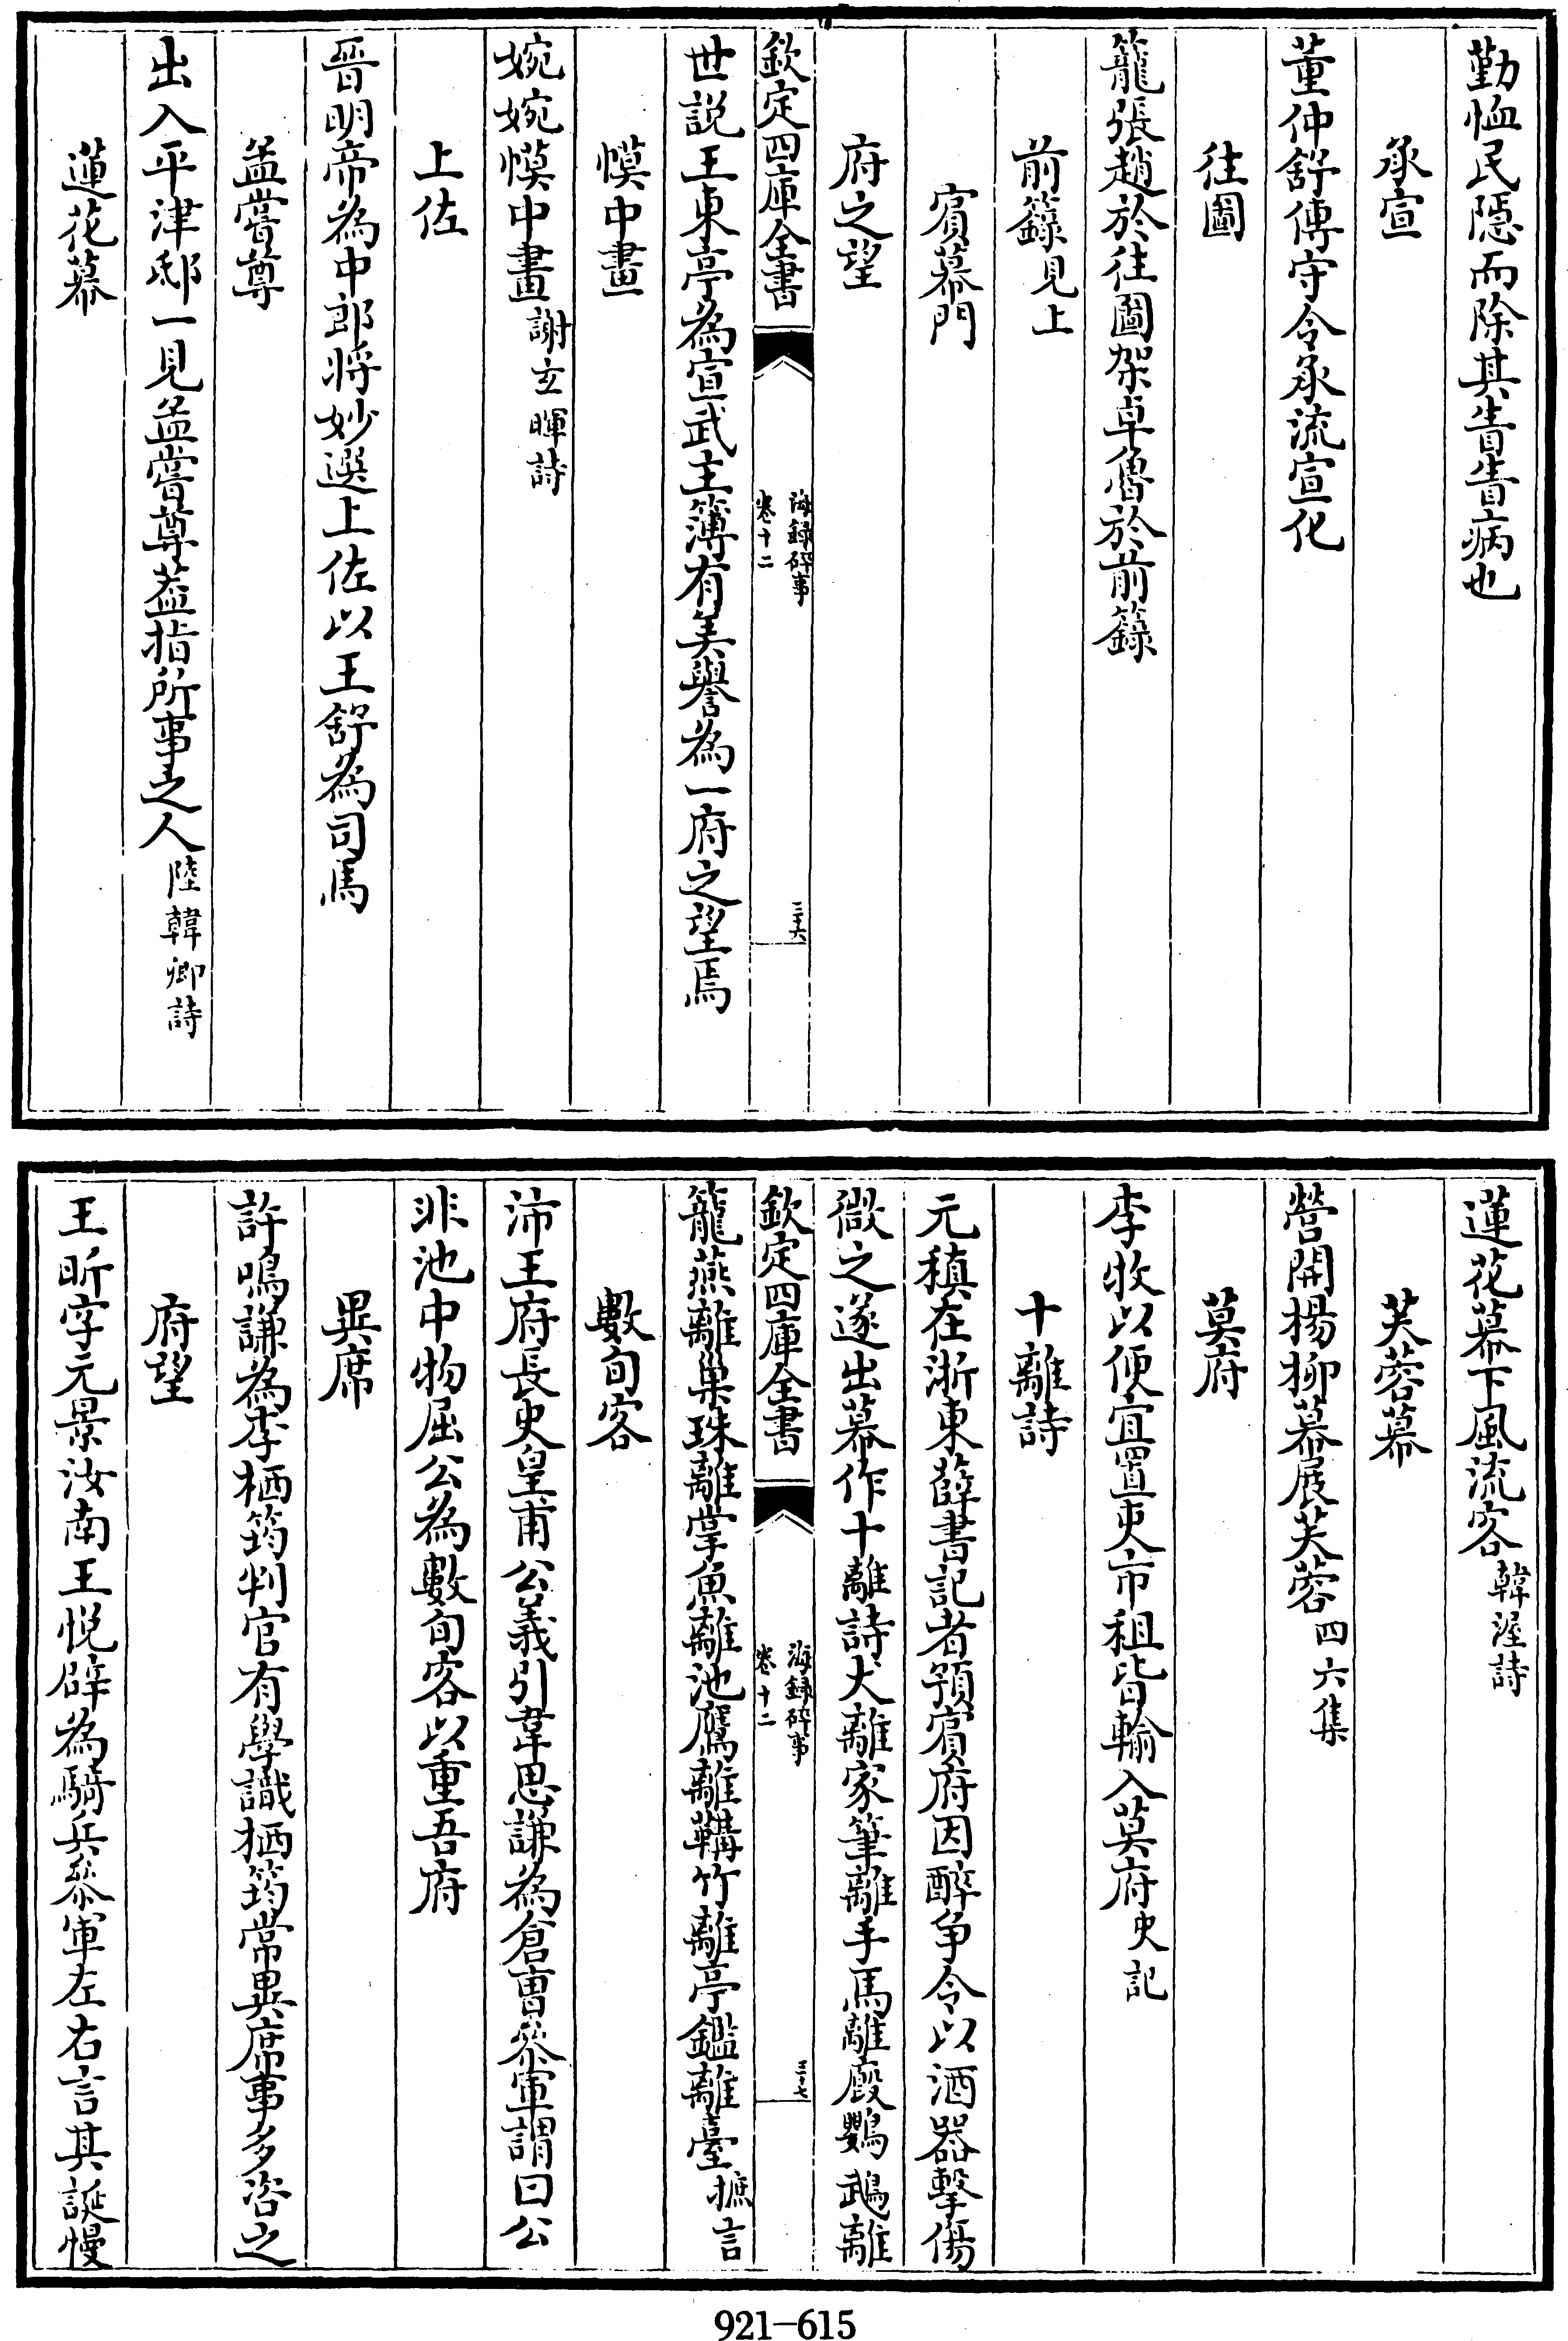 勤恤民隱而除其眚眚病也
承宣
董仲舒傳守令承流宣化
往圖
籠張趙於往圖架卓魯於前籙
前籙見上
賓幕門
府之望
欽定四庫全書
海錄碎事
卷十二
三十六
世説王東亭為宣武主簿有美譽為一府之望焉
㡢中畫
婉婉㡢中畫謝玄暉詩
上佐
晉明帝為中郎将妙選上佐以王舒為司馬
孟嘗尊
出入平津邸一見孟嘗尊葢指所事之人陸韓卿詩
蓮花幕
蓮花幕下風流客韓渥詩
芙蓉幕
營開楊柳幕展芙蓉四六集
莫府
李牧以便宜置吏市租皆輸入莫府史記
十離詩
元稹在浙東薛書記者預賓府因醉爭令以酒器擊傷
微之遂出幕作十離詩犬離家筆離手馬離廄鸚鵡離
欽定四庫全書
海錄碎事
卷十二
三十七
籠燕離巢珠離掌魚離池鷹離鞲竹離亭鑑離臺摭言
數旬客
沛王府長史皇甫公義引韋思謙為倉曹叅軍謂曰公
非池中物屈公為數旬客以重吾府
異席
許鳴謙為李栖筠判官有學識栖筠常異席事多咨之
府望
王昕字元景汝南王悅辟為騎兵叅軍左右言其誕慢
921-615